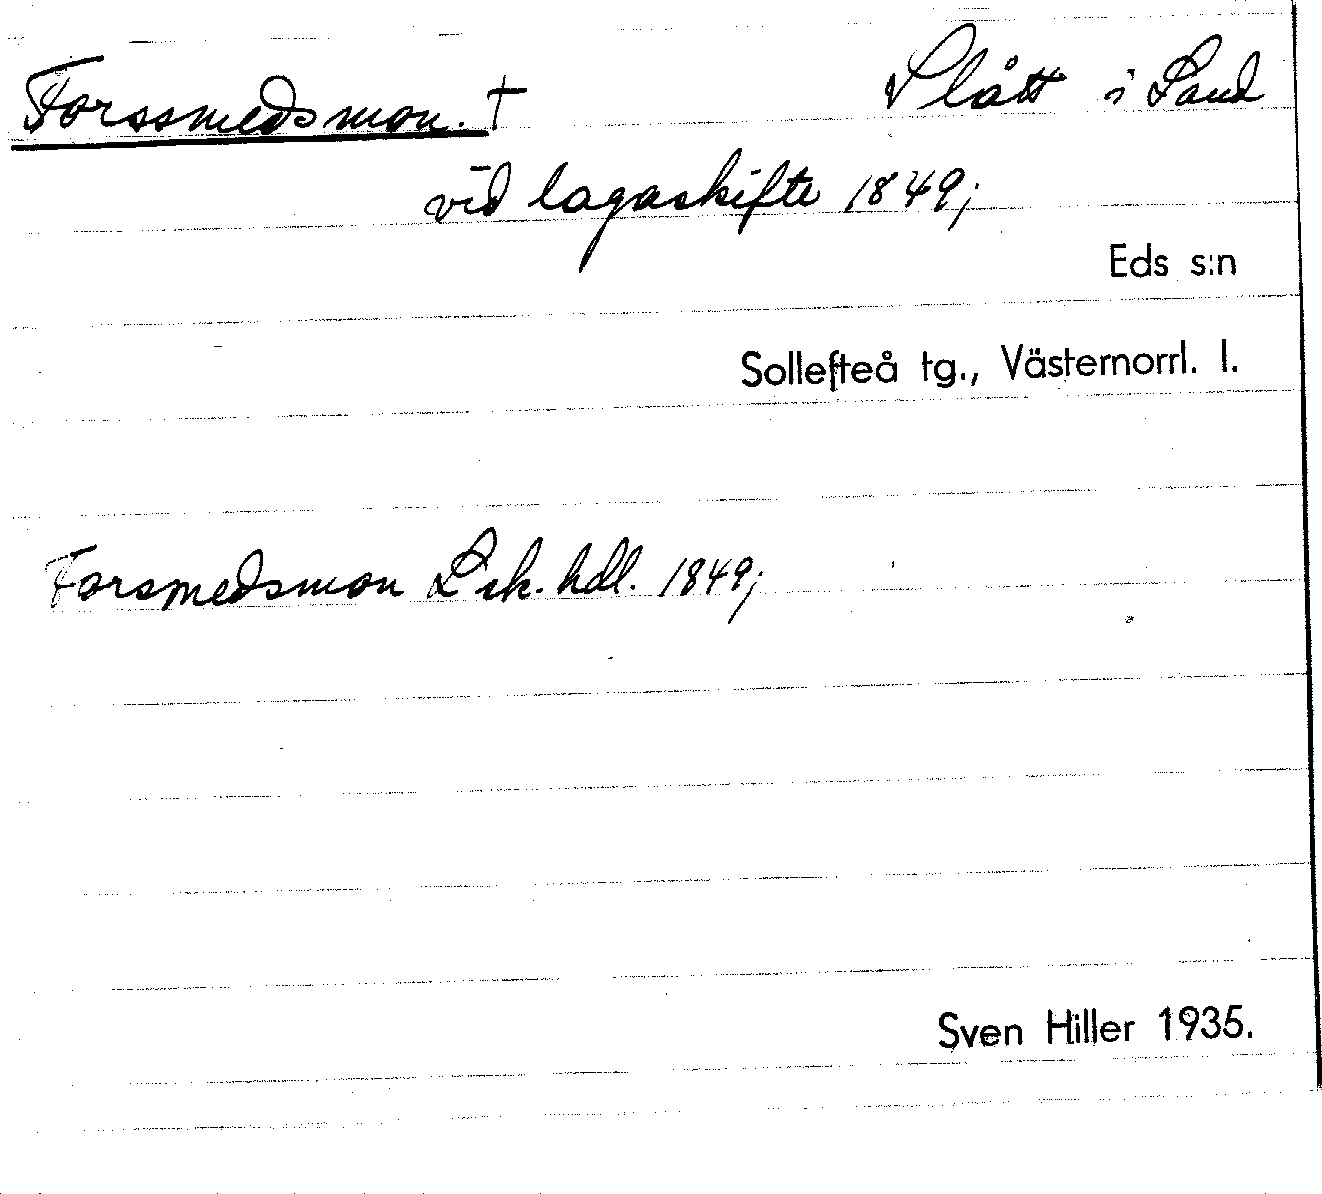 Forssmedsmon. † Slått i Sand
vid lagaskifte 1849;
Eds s:n
Sollefteå tg., Västernorrl. l.
Forsmedsmon Lsk. hdl. 1849;
Sven Hiller 1935.